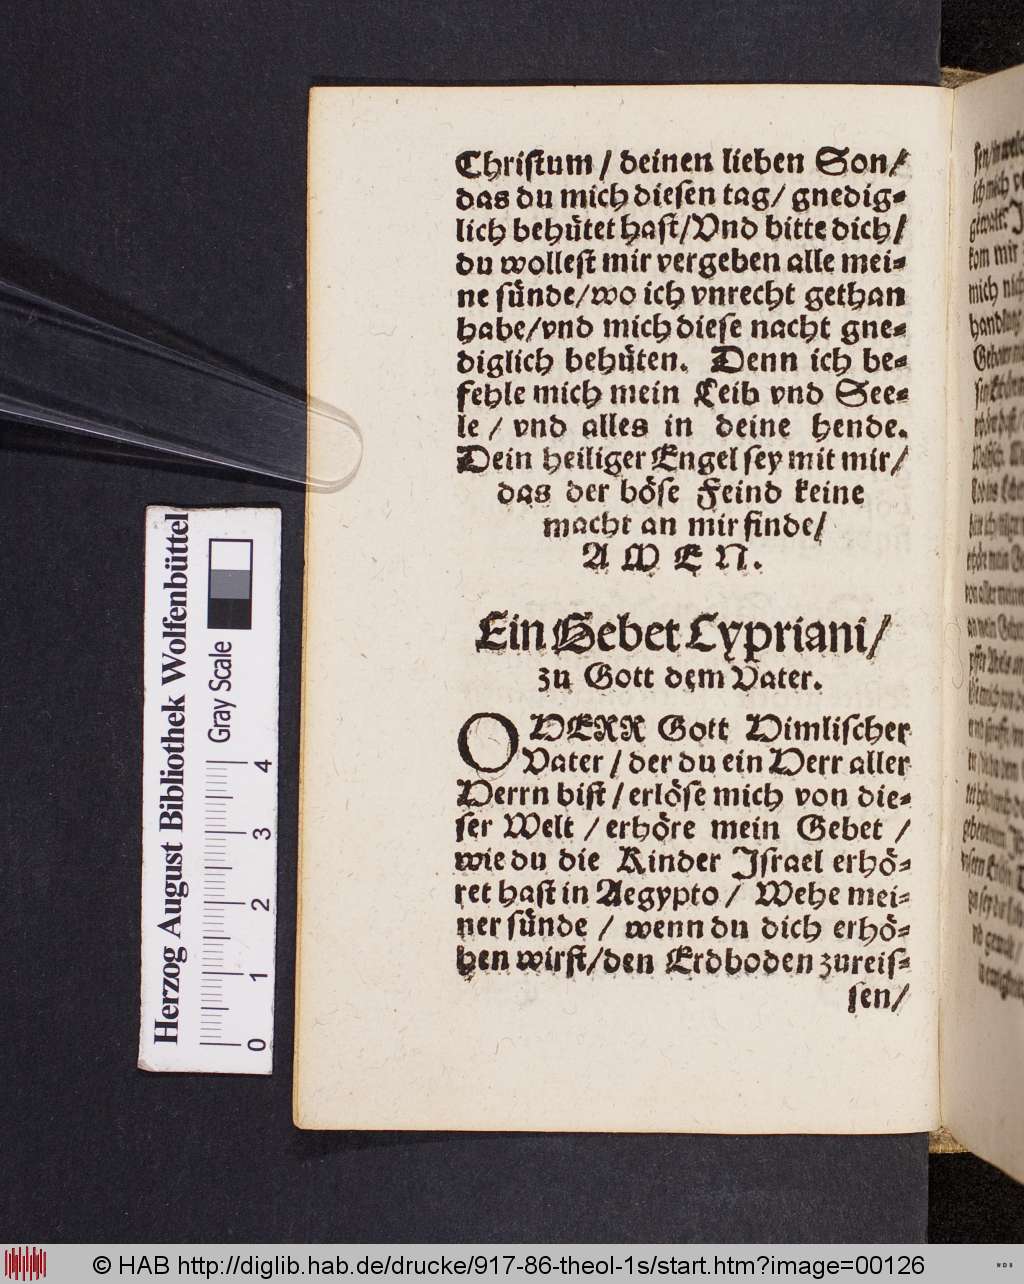 Christum / deinen lieben Son/
das du mich diesen tag/ gnedig-
lich behütet hast/Vnd bitte dich/
du wollest mir vergeben alle mei-
ne sünde/wo ich vnrecht gethan
habe/vnd mich diese nacht gne-
diglich behüten. Denn ich be-
fehle mich mein Leib vnd See-
le / vnd alles in deine hende.
Dein heiliger Engel sey mit mir/
das der böse Feind keine
macht an mir finde/
A M E N.
Ein Gebet Cypriani/
zu Gott dem Vater.
O HERR Gott Himlischer
Vater / der du ein Herr aller
Herrn bist / erlöse mich von die-
ser Welt / erhöre mein Gebet /
wie du die Kinder Israel erhö-
ret hast in Aegypto / Wehe mei-
ner sünde / wenn du dich erhö-
hen wirst/den Erdboden zureis-
sen/
Herzog August Bibliothek Wolfenbüttel
Gray Scale
0 1 2 3 4
© HAB http://diglib.hab.de/drucke/917-86-theol-1s/start.htm?image=00126